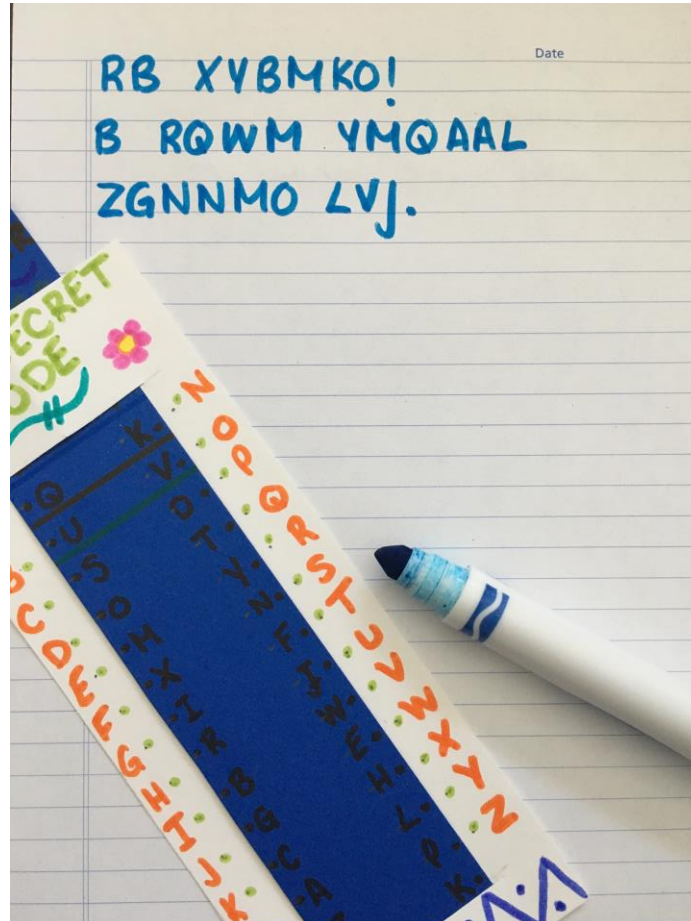 Date
RB XYBMKO!
B RQWM YMQAAL
ZGNNMO LVJ.
ECRET
ODE
N
O
P
Q
R
S
T
U
V
W
X
Y
Z
K
V
D
T
Y
N
F
J
W
E
H
L
P
K
Q
U
S
O
M
X
I
R
B
G
C
A
C
D
E
F
G
H
I
J
K